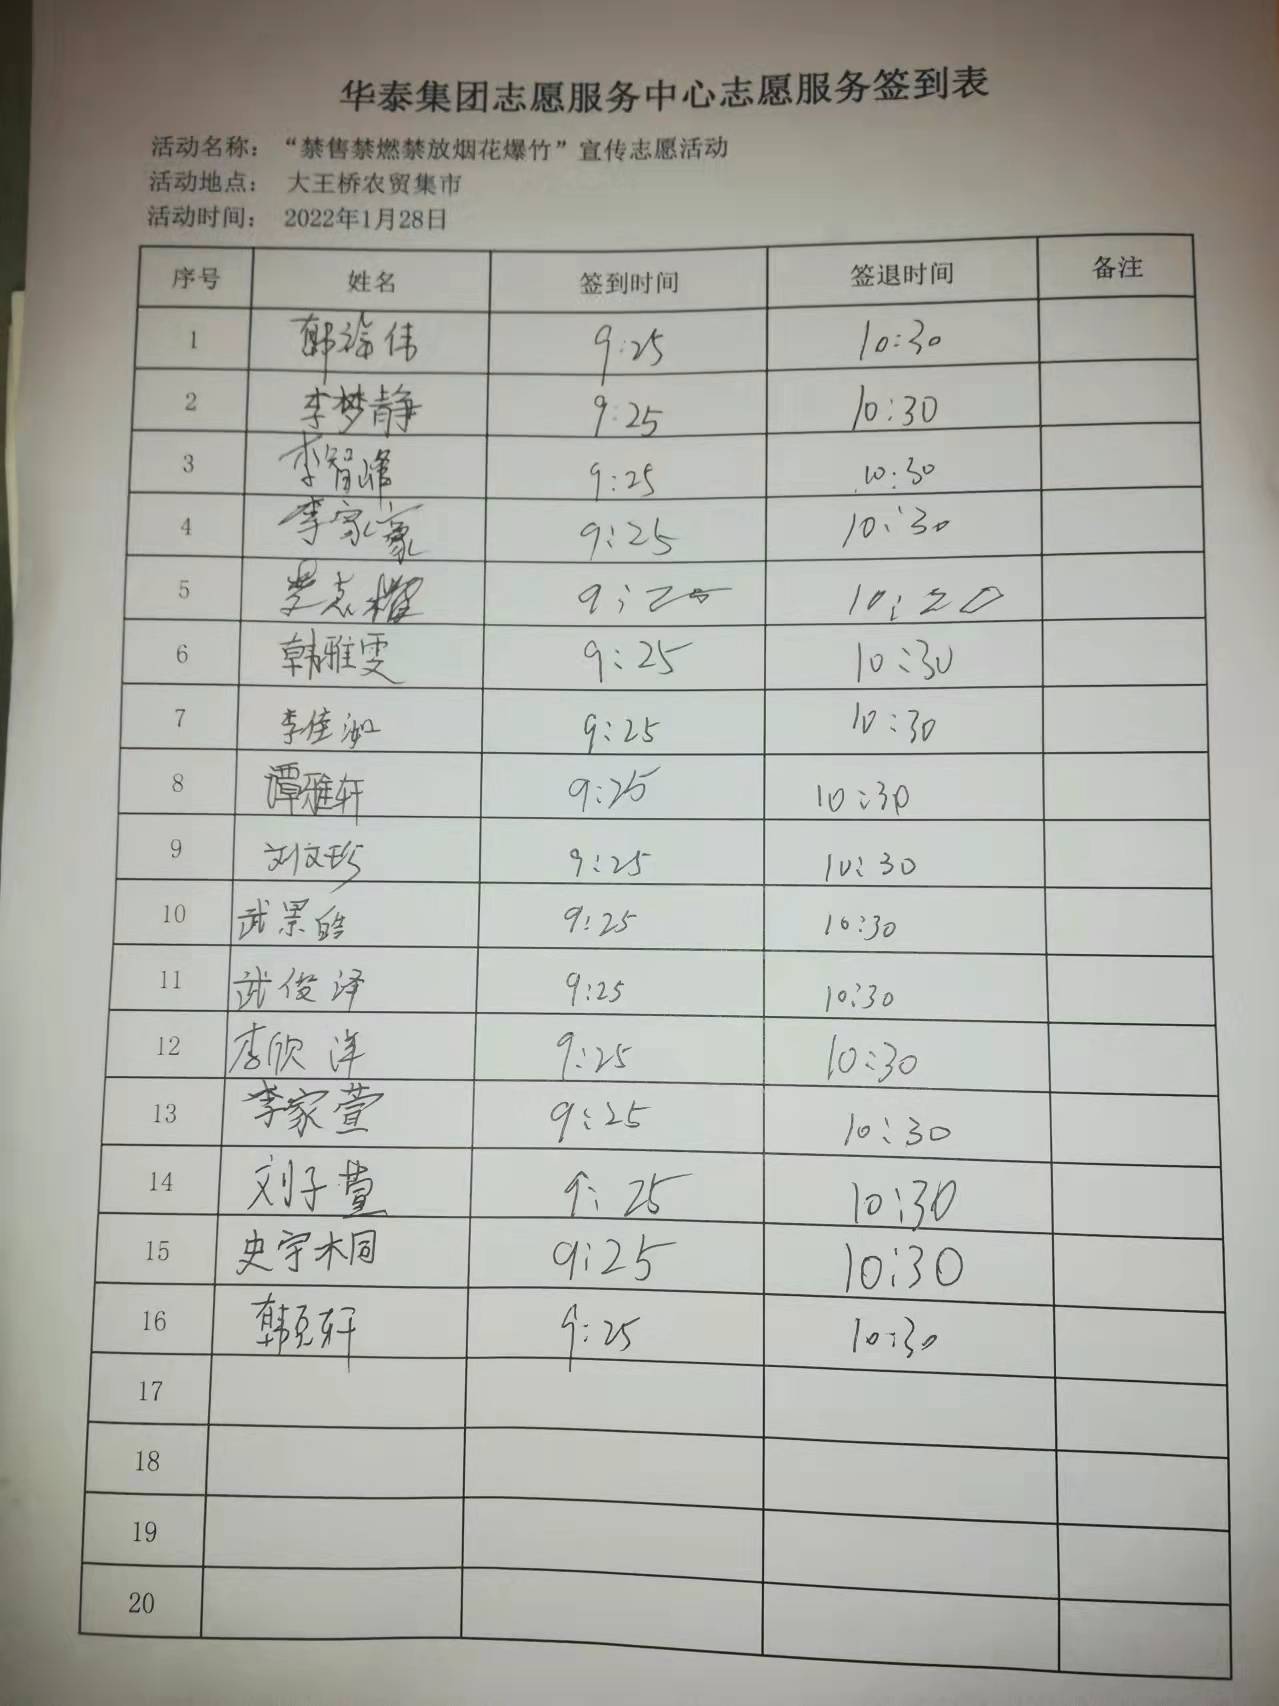 华泰集团志愿服务中心志愿服务签到表
活动名称： “禁售禁燃禁放烟花爆竹”宣传志愿活动
活动地点： 大王桥农贸集市
活动时间： 2022年1月28日
序号 姓名 签到时间 签退时间 备注
1 伟 9:25 10:30
2 李梦静 9:25 10:30
3 李智峰 9:25 10:30
4 李家豪 9:25 10:30
5 9:25 10:20
6 韩雅雯 9:25 10:30
7 李佳 9:25 10:30
8 谭雅轩 9:25 10:30
9 刘文珍 9:25 10:30
10 武景皓 9:25 10:30
11 武俊泽 9:25 10:30
12 李欣洋 9:25 10:30
13 李家萱 9:25 10:30
14 刘子萱 9:25 10:30
15 史宇桐 9:25 10:30
16 韩 轩 9:25 10:30
17
18
19
20